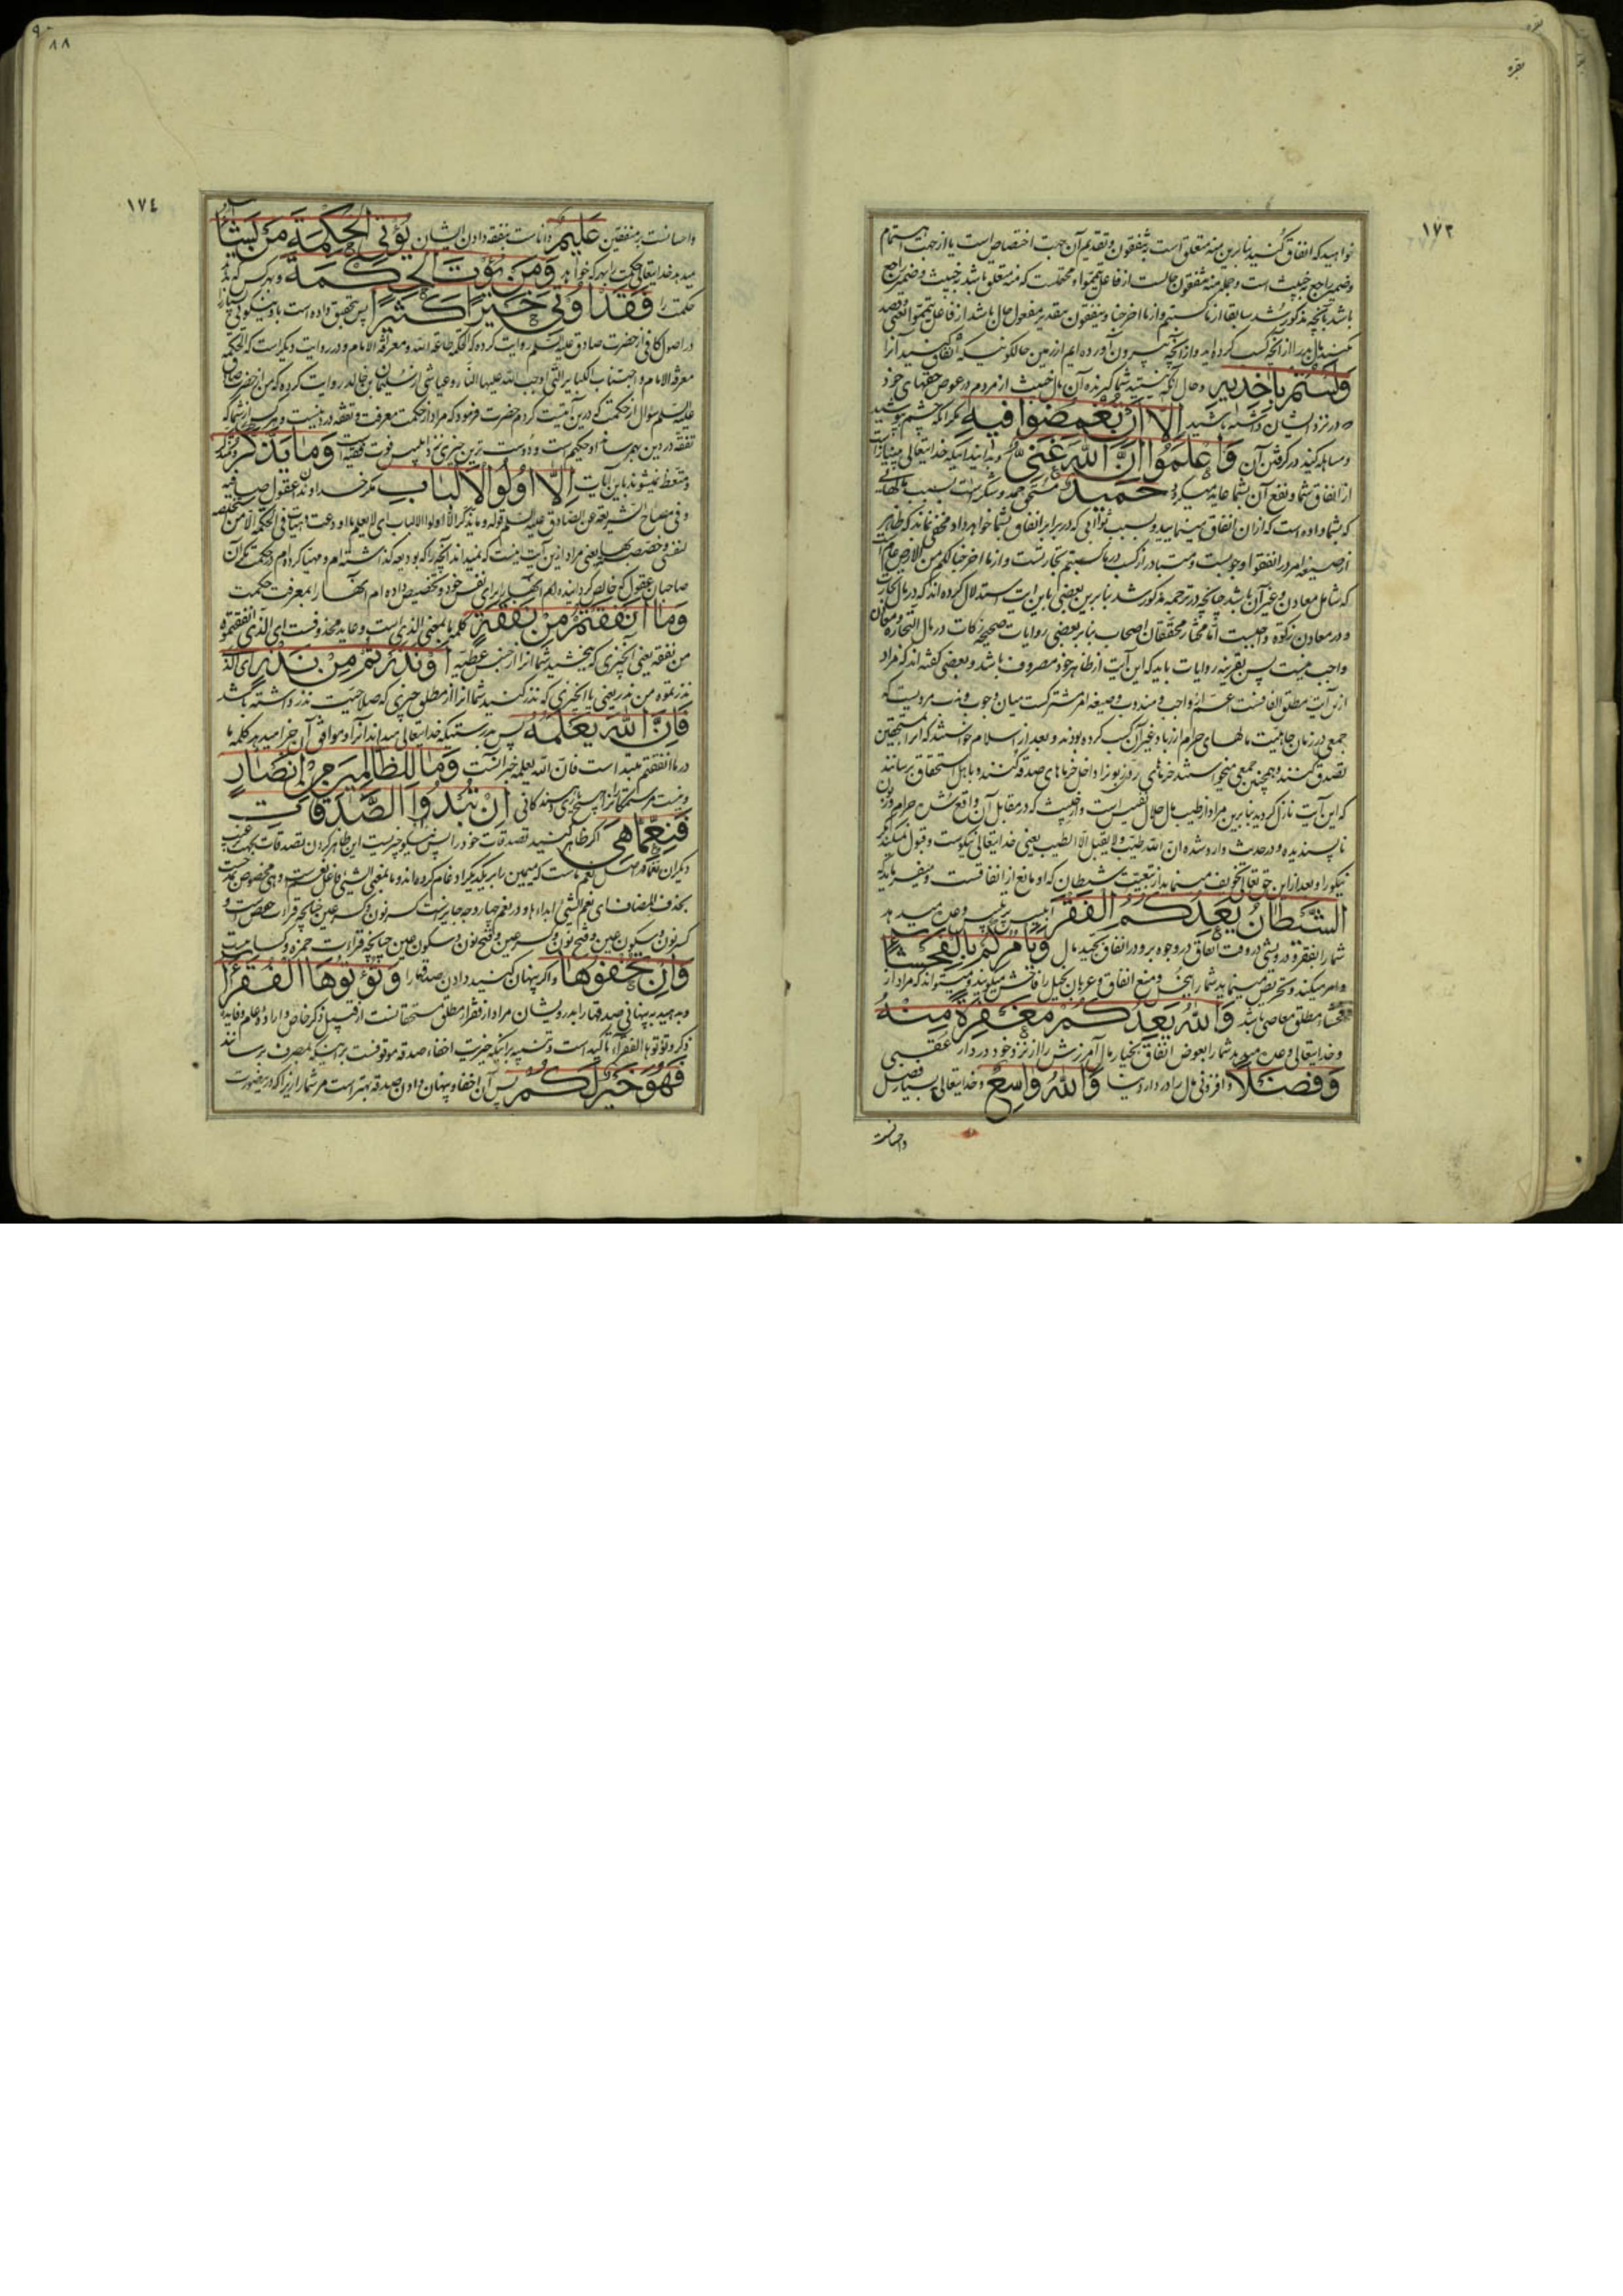 بقره
بقره
١٧٣
خواهید که انفاق کنید بنابرین منه متعلق است بتنفقون و تقدیم آن جهت اختصاص است یا از جهت اهتمام
وضمیر راجع بخبیث است و جمله منه تنفقون حالست از فاعل تیمموا و محتملست که منه متعلق باشد بخبیث وضمیر راجع
کنید مال بد را از آنچه کسب کرده‌اید و از آنچه بیرون آورده‌ایم از زمین حالکونیکه انفاق کنید آنرا
وَلَسْتُمْ بِآخِذِيهِ وحال آنکه نیستید شما گیرنده آن مال خبیث از مردم در عوض حقهای خود
که در نزد ایشان داشته باشید إِلَّا أَنْ تُغْمِضُوا فِيهِ مگر آنکه چشم پوشید
و مساهله کنید در گرفتن آن وَاعْلَمُوا أَنَّ اللَّهَ غَنِيٌّ و بدانید اینکه خدایتعالی بی‌نیاز است
از انفاق شما و نفع آن بشما عاید میگردد حَمِيدٌ مستحق حمد و شکر است بسبب مالهائی
که بشما داده است که از آن انفاق مینمایید و بسبب ثوابی که در برابر انفاق بشما خواهد داد و مخفی نماند که ظاهر
که شامل معادن و غیر آن باشد چنانچه در ترجمه مذکور شد بنابرین بعضی باین آیت استدلال کرده‌اند که در مال تجارت
و در معادن زکوة واجبست امّا مختار محققان اصحاب بنابر بعضی روایات صحیحه زکات در مال التجاره و معادن
واجب نیست پس بقرینه روایات باید که این آیت از ظاهر خود مصروف باشد و بعضی گفته‌اند که مراد
از این آیت مطلق انفاقست اعم از واجب و مندوب و صیغه امر مشترکست میان وجوب و ندب مرویست که
جمعی در زمان جاهلیت مالهای حرام از ربا و غیر آن کسب کرده بودند و بعد از اسلام خواستند که از آن بمستحقین
تصدق کنند و همچنین جمعی میخواستند خرماهای ردی زبون را داخل خرماهای صدقه کنند و باهل استحقاق برسانند
که این آیت نازل گردید بنابرین مراد از طیب مال حلال نفیس است و خبیث که در مقابل آن واقع شده حرام و زبون
ناپسندیده و در حدیث وارد شده ان الله طیّب ولا یقبل الّا الطیب یعنی خدایتعالی نیکوست و قبول نمیکند مگر
نیکو را و بعد از این حقتعالی تخویف مینماید از تبعیت شیطان که او مانع از انفاقست و میفرماید که
الشَّيْطَانُ يَعِدُكُمُ الْفَقْرَ ابلیس پر تلبیس وعده میدهد
شما را بفقر و درویشی در وقت انفاق در وجوه بر و در انفاق جید مال وَيَأْمُرُكُمْ بِالْفَحْشَاءِ
و امر میکند و تحریص مینماید شما را ببخل و منع انفاق و عربان بخیل را فاحش میگویند و میتواند که مراد از
فحشاء مطلق معاصی باشد وَاللَّهُ يَعِدُكُمْ مَغْفِرَةً مِنْهُ
و خدایتعالی وعده میدهد شما را بعوض انفاق بخیار مال آمرزش را از نزد خود در دار عقبی
وَفَضْلًا و افزونی مال را در دار دنیا وَاللَّهُ وَاسِعٌ و خدایتعالی بسیار فضل
واحسانست
٨٨
١٧٤
واحسانست بر منفقین عَلِيمٌ داناست بنفقه دادن ایشان يُؤْتِي الْحِكْمَةَ مَنْ يَشَاءُ
میدهد خدایتعالی حکمت را بهر که خواهد وَمَنْ يُؤْتَ الْحِكْمَةَ و بهر کس که داد
حکمت را فَقَدْ أُوتِيَ خَيْرًا كَثِيرًا پس بتحقیق داده است باو نیکوئی بسیار
در اصول کافی از حضرت صادق علیه السّلم روایت کرده که الحکمة طاعة الله و معرفة الامام و در روایت دیگر است که الحکمة
معرفة الامام و اجتناب الکبایر التی اوجب الله علیها النّار و عیاشی از سلیمان بن خالد روایت کرده که من از حضرت صادق
علیه السّلم سؤال از حکمت که درین آیتست کردم حضرت فرمود که مراد از حکمت معرفت و تفقه در دینست و هر کس از شما که
تفقه در دین بهم رساند او حکیم است و دوست ترین چیزی نزد ابلیس فوت فقیه است وَمَا يَذَّكَّرُ و پند نگیرند
و متعظ نمیشوند باین آیات إِلَّا أُولُو الْأَلْبَابِ مگر خداوندان عقول صافیه
و فی مصباح الشریعة عن الصّادق علیه السّلم قوله و ما یذّکّر الّا اولوا الالباب ای لا یعلم ما اودعت و هیّات فی الحکمة الّا من استخلصته
لنفسی و خصصته بها یعنی مراد ازین آیت اینست که نمیداند آنچه را که بودیعه گذاشته‌ام و مهیا کرده‌ام در حکمت مگر آن
صاحبان عقول که خالص گردانیده‌ام آنها را برای نفس خود و تخصیص داده‌ام آنها را بمعرفت حکمت
وَمَا أَنْفَقْتُمْ مِنْ نَفَقَةٍ کلمه ما بمعنی الذی است و عاید محذوفست ای الذی انفقتموه
من نفقة یعنی آنچیزی که ببخشید شما آنرا از جنس عطیه أَوْ نَذَرْتُمْ مِنْ نَذْرٍ ای الذی
نذرتموه من نذر یعنی یا آنچیزی که نذر کنید شما آنرا از مطلق چیزی که صلاحیت نذر داشته باشد
فَإِنَّ اللَّهَ يَعْلَمُهُ پس بدرستیکه خدایتعالی میداند آنرا و موافق آن جزا میدهد کلمه ما
در ما انفقتم مبتدا است فانّ الله یعلمه خبر آنست وَمَا لِلظَّالِمِينَ مِنْ أَنْصَارٍ
و نیست مر ستمکاران را هیچ یاری کنندگانی إِنْ تُبْدُوا الصَّدَقَاتِ
فَنِعِمَّا هِيَ اگر ظاهر کنید تصدقات خود را پس نیکو چیزیست این ظاهر کردن تصدقات بجهت رغبت
بحذف المضاف ای نعم الشیء ابداءها و در نعم چهار وجه جایز است کسر نون و کسر عین چنانچه قراءت حفص است و
کسر نون و سکون عین و فتح نون و کسر عین و فتح نون و سکون عین چنانچه قراءت حمزه و کسایست
وَإِنْ تُخْفُوهَا و اگر پنهان کنید دادن صدقها را وَتُؤْتُوهَا الْفُقَرَاءَ
و بدهید به پنهانی صدقها را بدرویشان مراد از فقرا مطلق مستحقانست از قبیل ذکر خاص و اراده عام و فایده
ذکر و تؤتوها الفقراء تاکید است و تنبیه بر اینکه خیریت اخفاء صدقه موقوفست بر اینکه بمصرف برسانند
فَهُوَ خَيْرٌ لَكُمْ پس آن اخفا و پنهان دادن صدقه بهتر است مر شما را زیرا که درینصورت